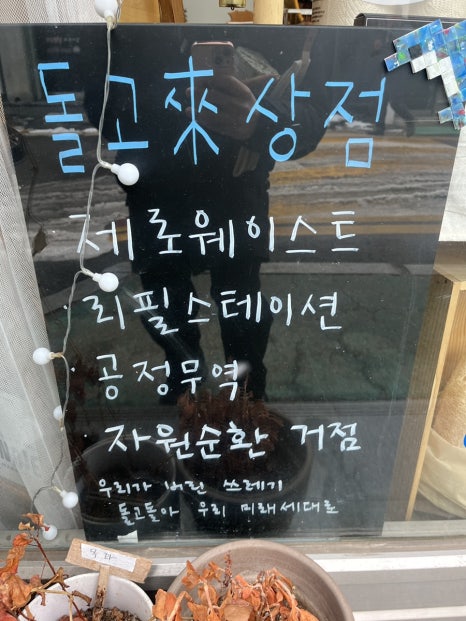 돌고來 상점
제로웨이스트
· 리필스테이션
· 공정무역
· 자원순환 거점
우리가 버린 쓰레기
돌고돌아 우리 미래세대로